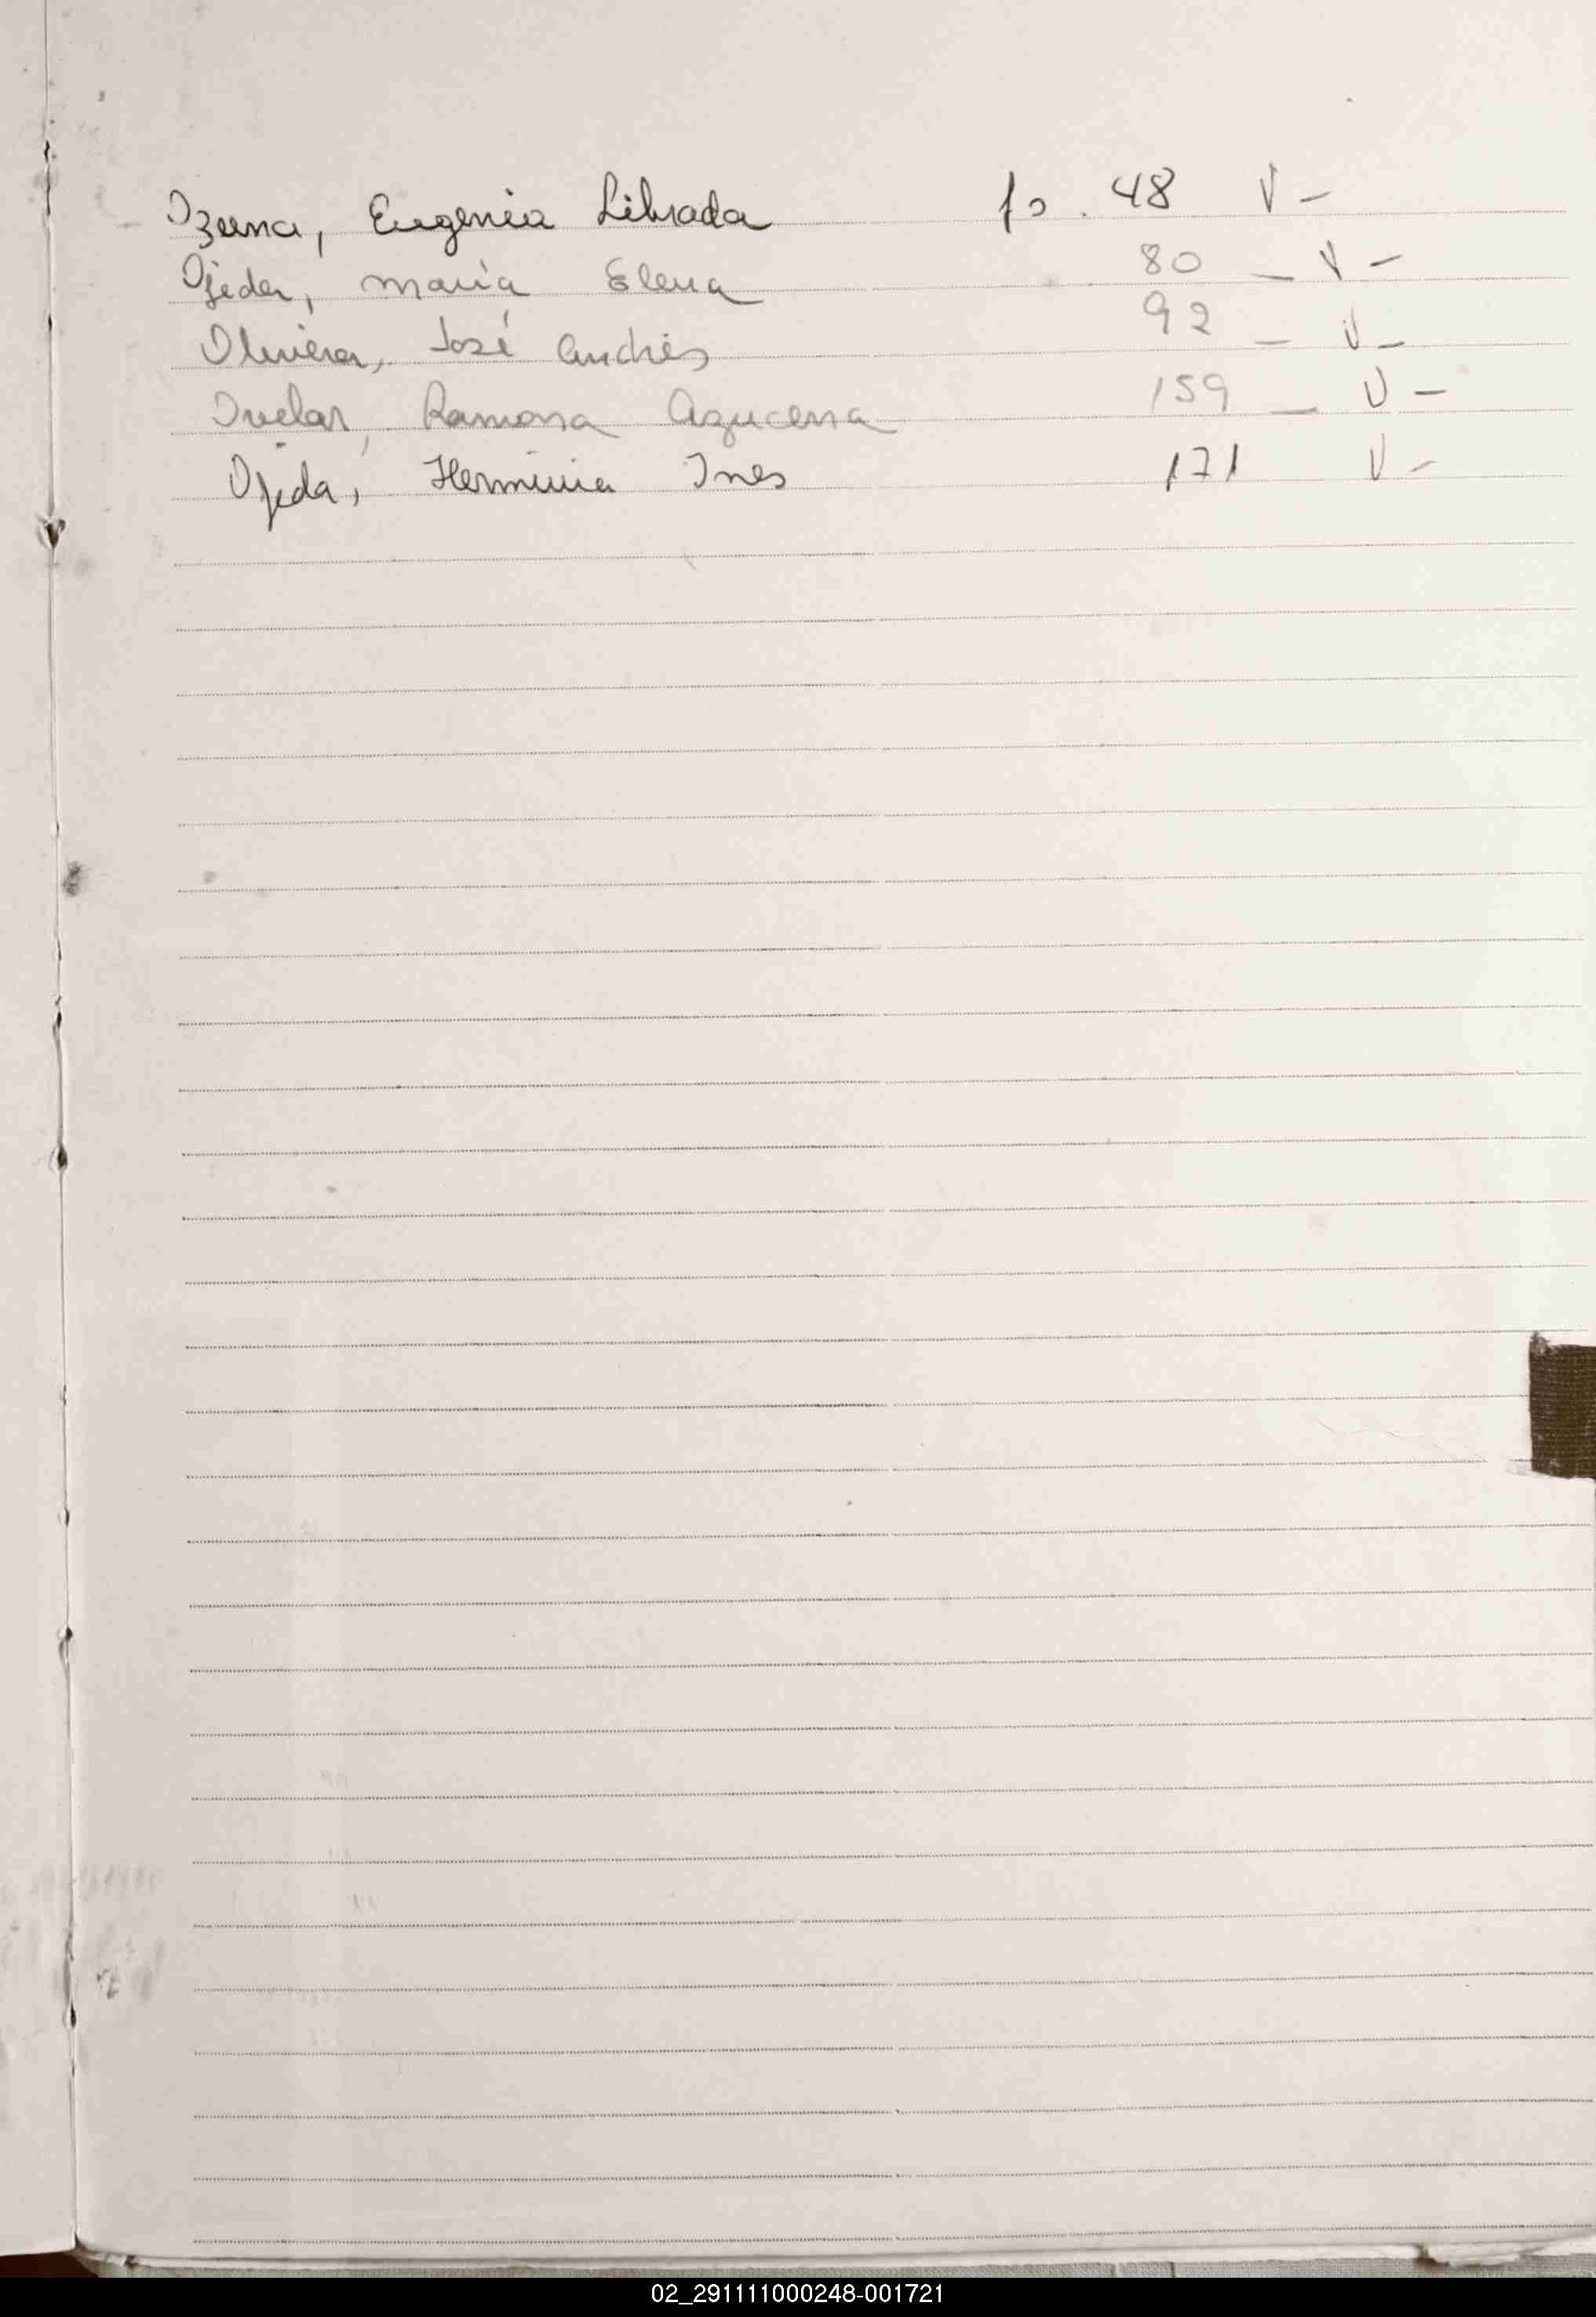 Ozuna, Eugenia Librada fo. 48 V -
Ojeda, María Elena 80 - V -
Olivera, José Andrés 92 - V -
Ovelar, Ramona Azucena 159 - V -
Ojeda, Herminia Ines 171 V -
02_291111000248-001721